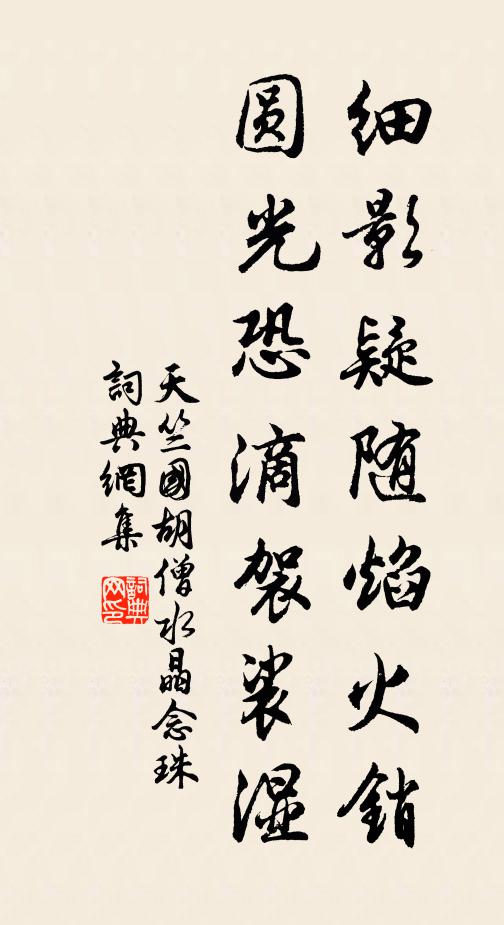 细影疑随焰火销
圆光恐滴袈裟湿
天竺國胡僧水晶念珠
詞典網集
詞典
网印